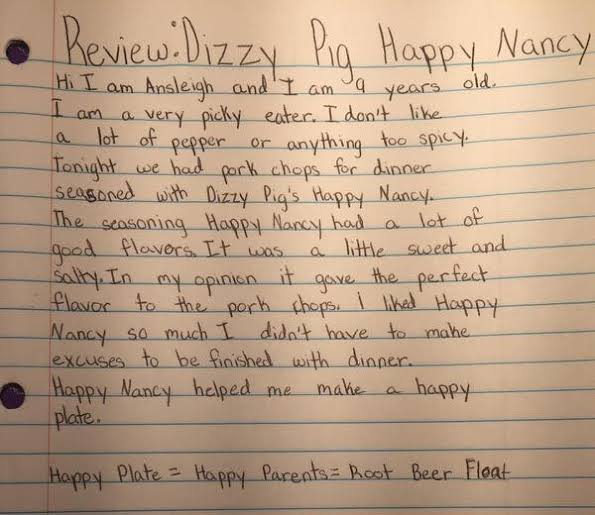 Review: Dizzy Pig Happy Nancy
Hi I am Ansleigh and I am 9 years old.
I am a very picky eater. I don't like
a lot of pepper or anything too spicy.
Tonight we had pork chops for dinner
seasoned with Dizzy Pig's Happy Nancy.
The seasoning Happy Nancy had a lot of
good flavors. It was a little sweet and
salty. In my opinion it gave the perfect
flavor to the pork chops. I liked Happy
Nancy so much I didn't have to make
excuses to be finished with dinner.
Happy Nancy helped me make a happy
plate.
Happy Plate = Happy Parents = Root Beer Float